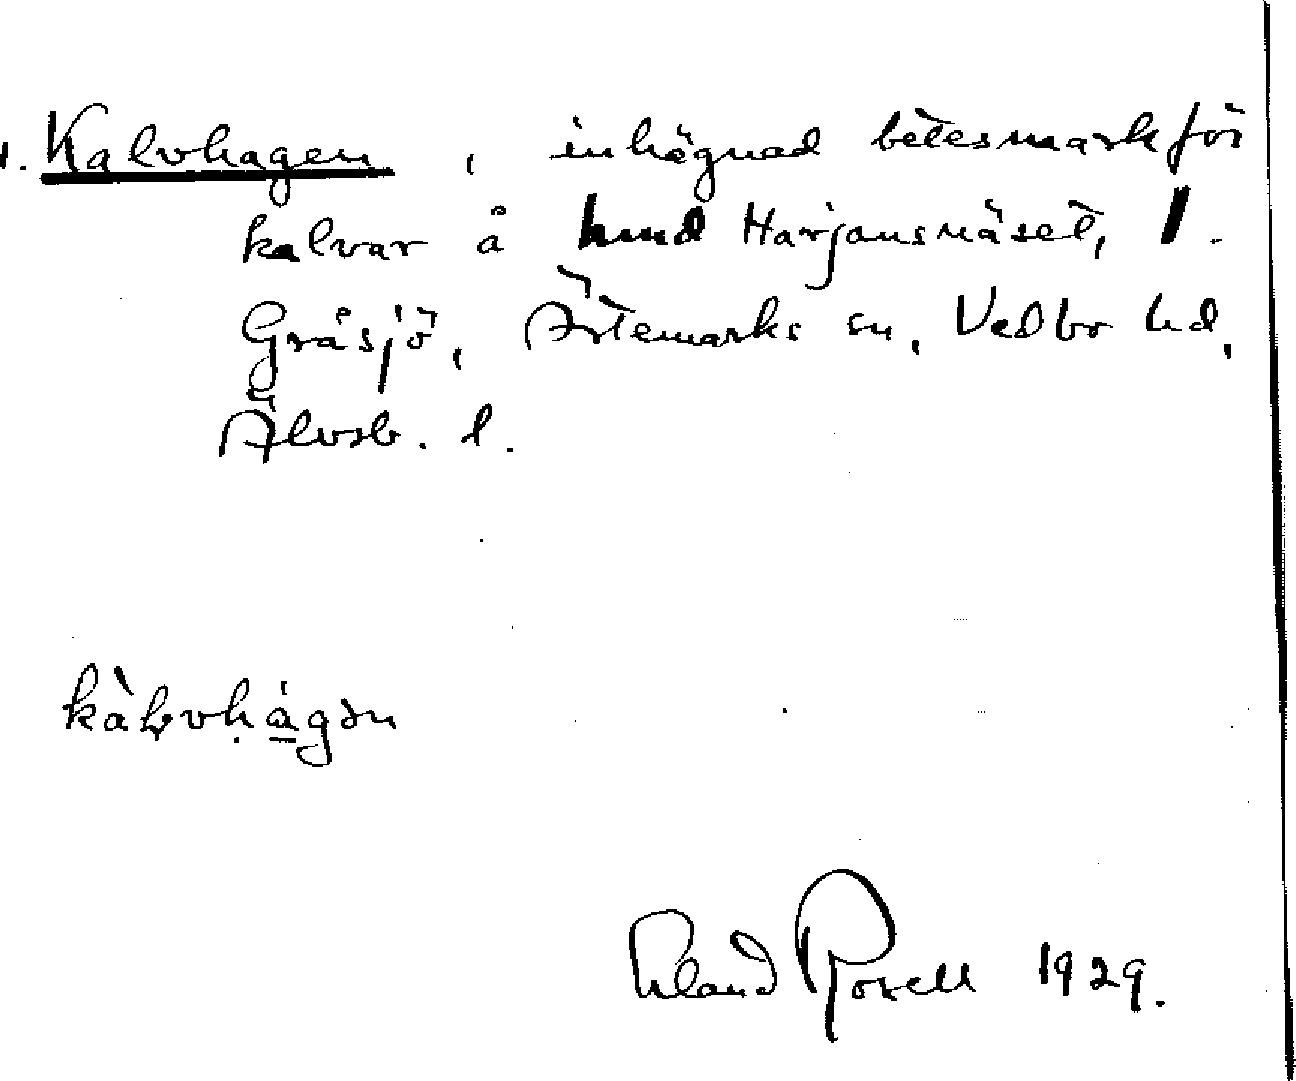 1. Kalvhagen, inhögnad betesmark för
kalvar å hmd Harjansnäset, 1.
Gråsjö, Ärtemarks sn, Vedbo hd,
Älvsb. l.
kàḷvhågən
Erland Rosell 1929.